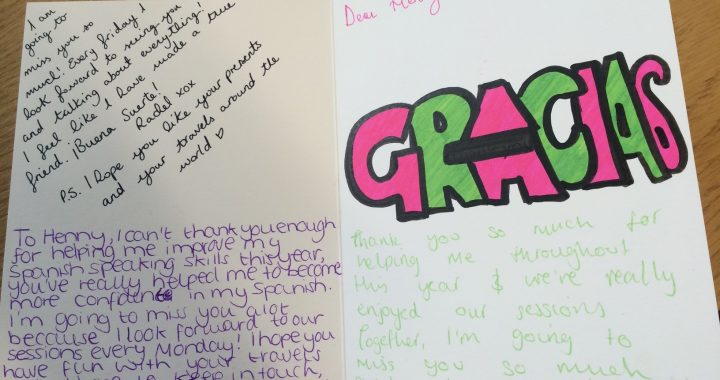 I am
going to
miss you so
much! Every friday I
look forward to seeing you
and talking about everything!
I feel like I have made a true
friend. ¡Buena Suerte!
xox
P.S. I Hope you like your presents
and your travels around the
world ♡
To Henny, I can't thank you enough
for helping me improve my
Spanish speaking skills this year,
you've really helped me to become
more confident in my Spanish.
I'm going to miss you alot
because I look forward to our
sessions every Monday! I hope you
have fun with your travels
in touch,
Dear
GRACIAS
thank you so much for
helping me throughout
this year & we've really
enjoyed our sessions
together, I'm going to
miss you so much